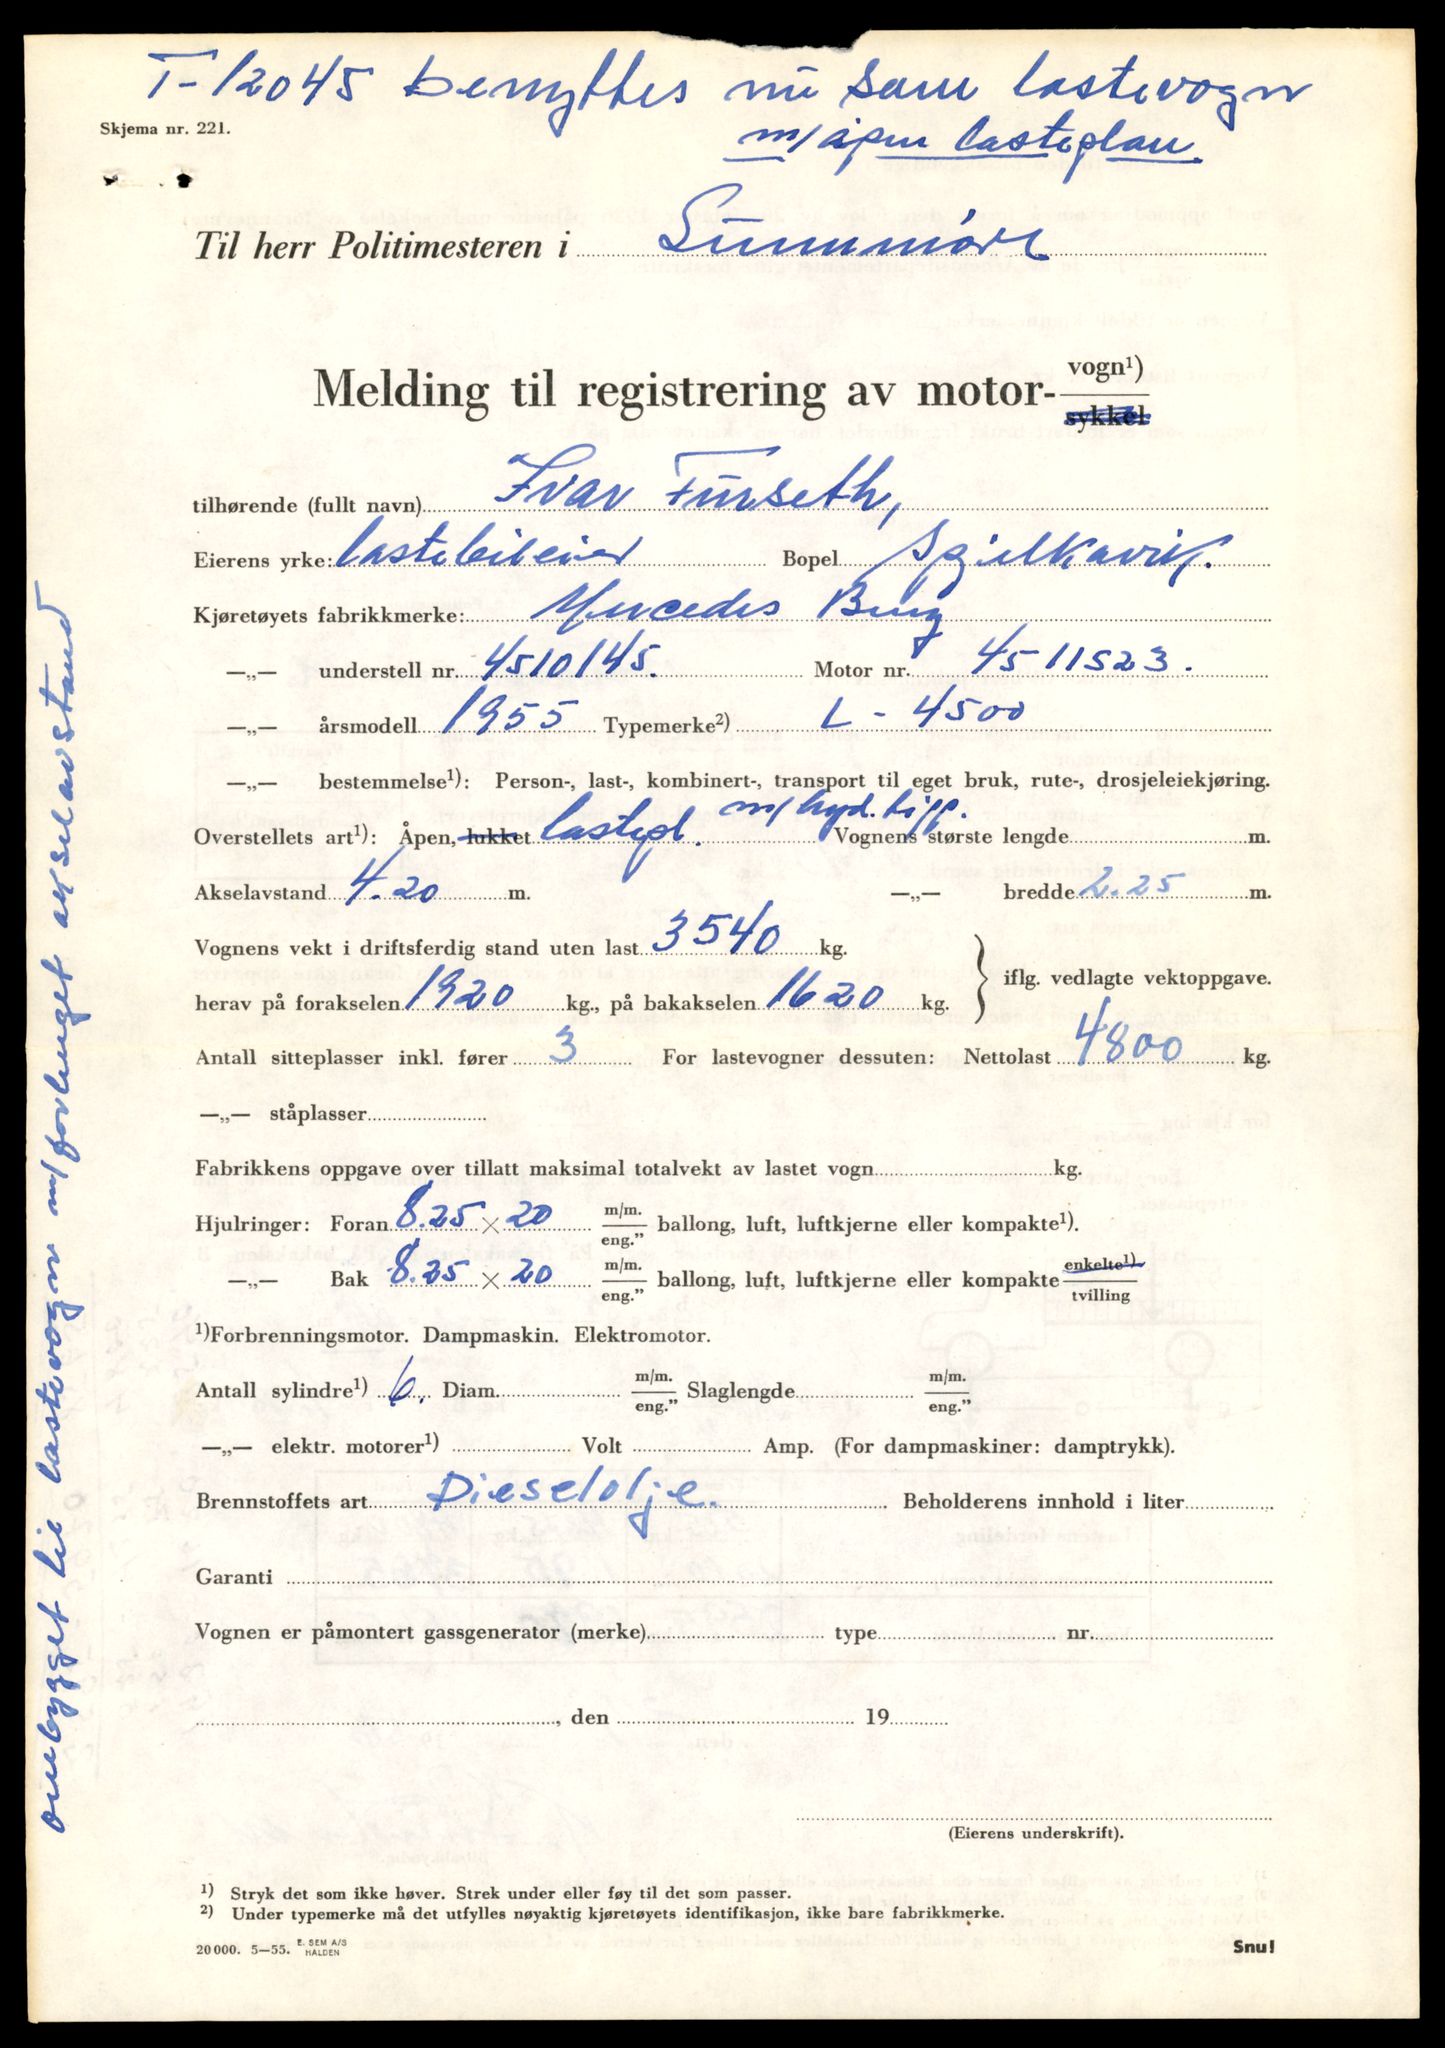 T-12045 benyttes nu som lastevogn
m/åpen lasteplan.
Skjema nr. 221.
Til herr Politimesteren i Sunnmøre
Melding til registrering av motor- vogn¹)
sykkel
tilhørende (fullt navn) Ivar Furseth,
Eierens yrke: lastebileier Bopel Spjelkavik.
Kjøretøyets fabrikkmerke: Mercedes Benz
—„— understell nr. 4510145. Motor nr. 4511523.
—„— årsmodell 1955 Typemerke²) L - 4500
—„— bestemmelse¹): Person-, last-, kombinert-, transport til eget bruk, rute-, drosjeleiekjøring.
Overstellets art¹): Åpen, lukket lastepl. m/hyd. tipp. Vognens største lengde m.
Akselavstand 4.20 m. —„— bredde 2.25 m.
Vognens vekt i driftsferdig stand uten last 3540 kg.
herav på forakselen 1920 kg., på bakakselen 1620 kg. iflg. vedlagte vektoppgave.
Antall sitteplasser inkl. fører 3 For lastevogner dessuten: Nettolast 4800 kg.
—„— ståplasser
Fabrikkens oppgave over tillatt maksimal totalvekt av lastet vogn kg.
Hjulringer: Foran 8.25 × 20 m/m. eng.” ballong, luft, luftkjerne eller kompakte¹).
—„— Bak 8.25 × 20 m/m. eng.” ballong, luft, luftkjerne eller kompakte enkelte¹) tvilling
¹)Forbrenningsmotor. Dampmaskin. Elektromotor.
Antall sylindre¹) 6. Diam. m/m. eng.” Slaglengde m/m. eng.”
—„— elektr. motorer¹) Volt Amp. (For dampmaskiner: damptrykk).
Brennstoffets art Dieselolje. Beholderens innhold i liter
Garanti
Vognen er påmontert gassgenerator (merke) type nr.
, den 19
(Eierens underskrift).
¹) Stryk det som ikke høver. Strek under eller føy til det som passer.
²) Under typemerke må det utfylles nøyaktig kjøretøyets identifikasjon, ikke bare fabrikkmerke.
20000. 5—55. E. SEM A/S HALDEN
Snu!
ombygget til lastevogn m/forlenget akselavstand